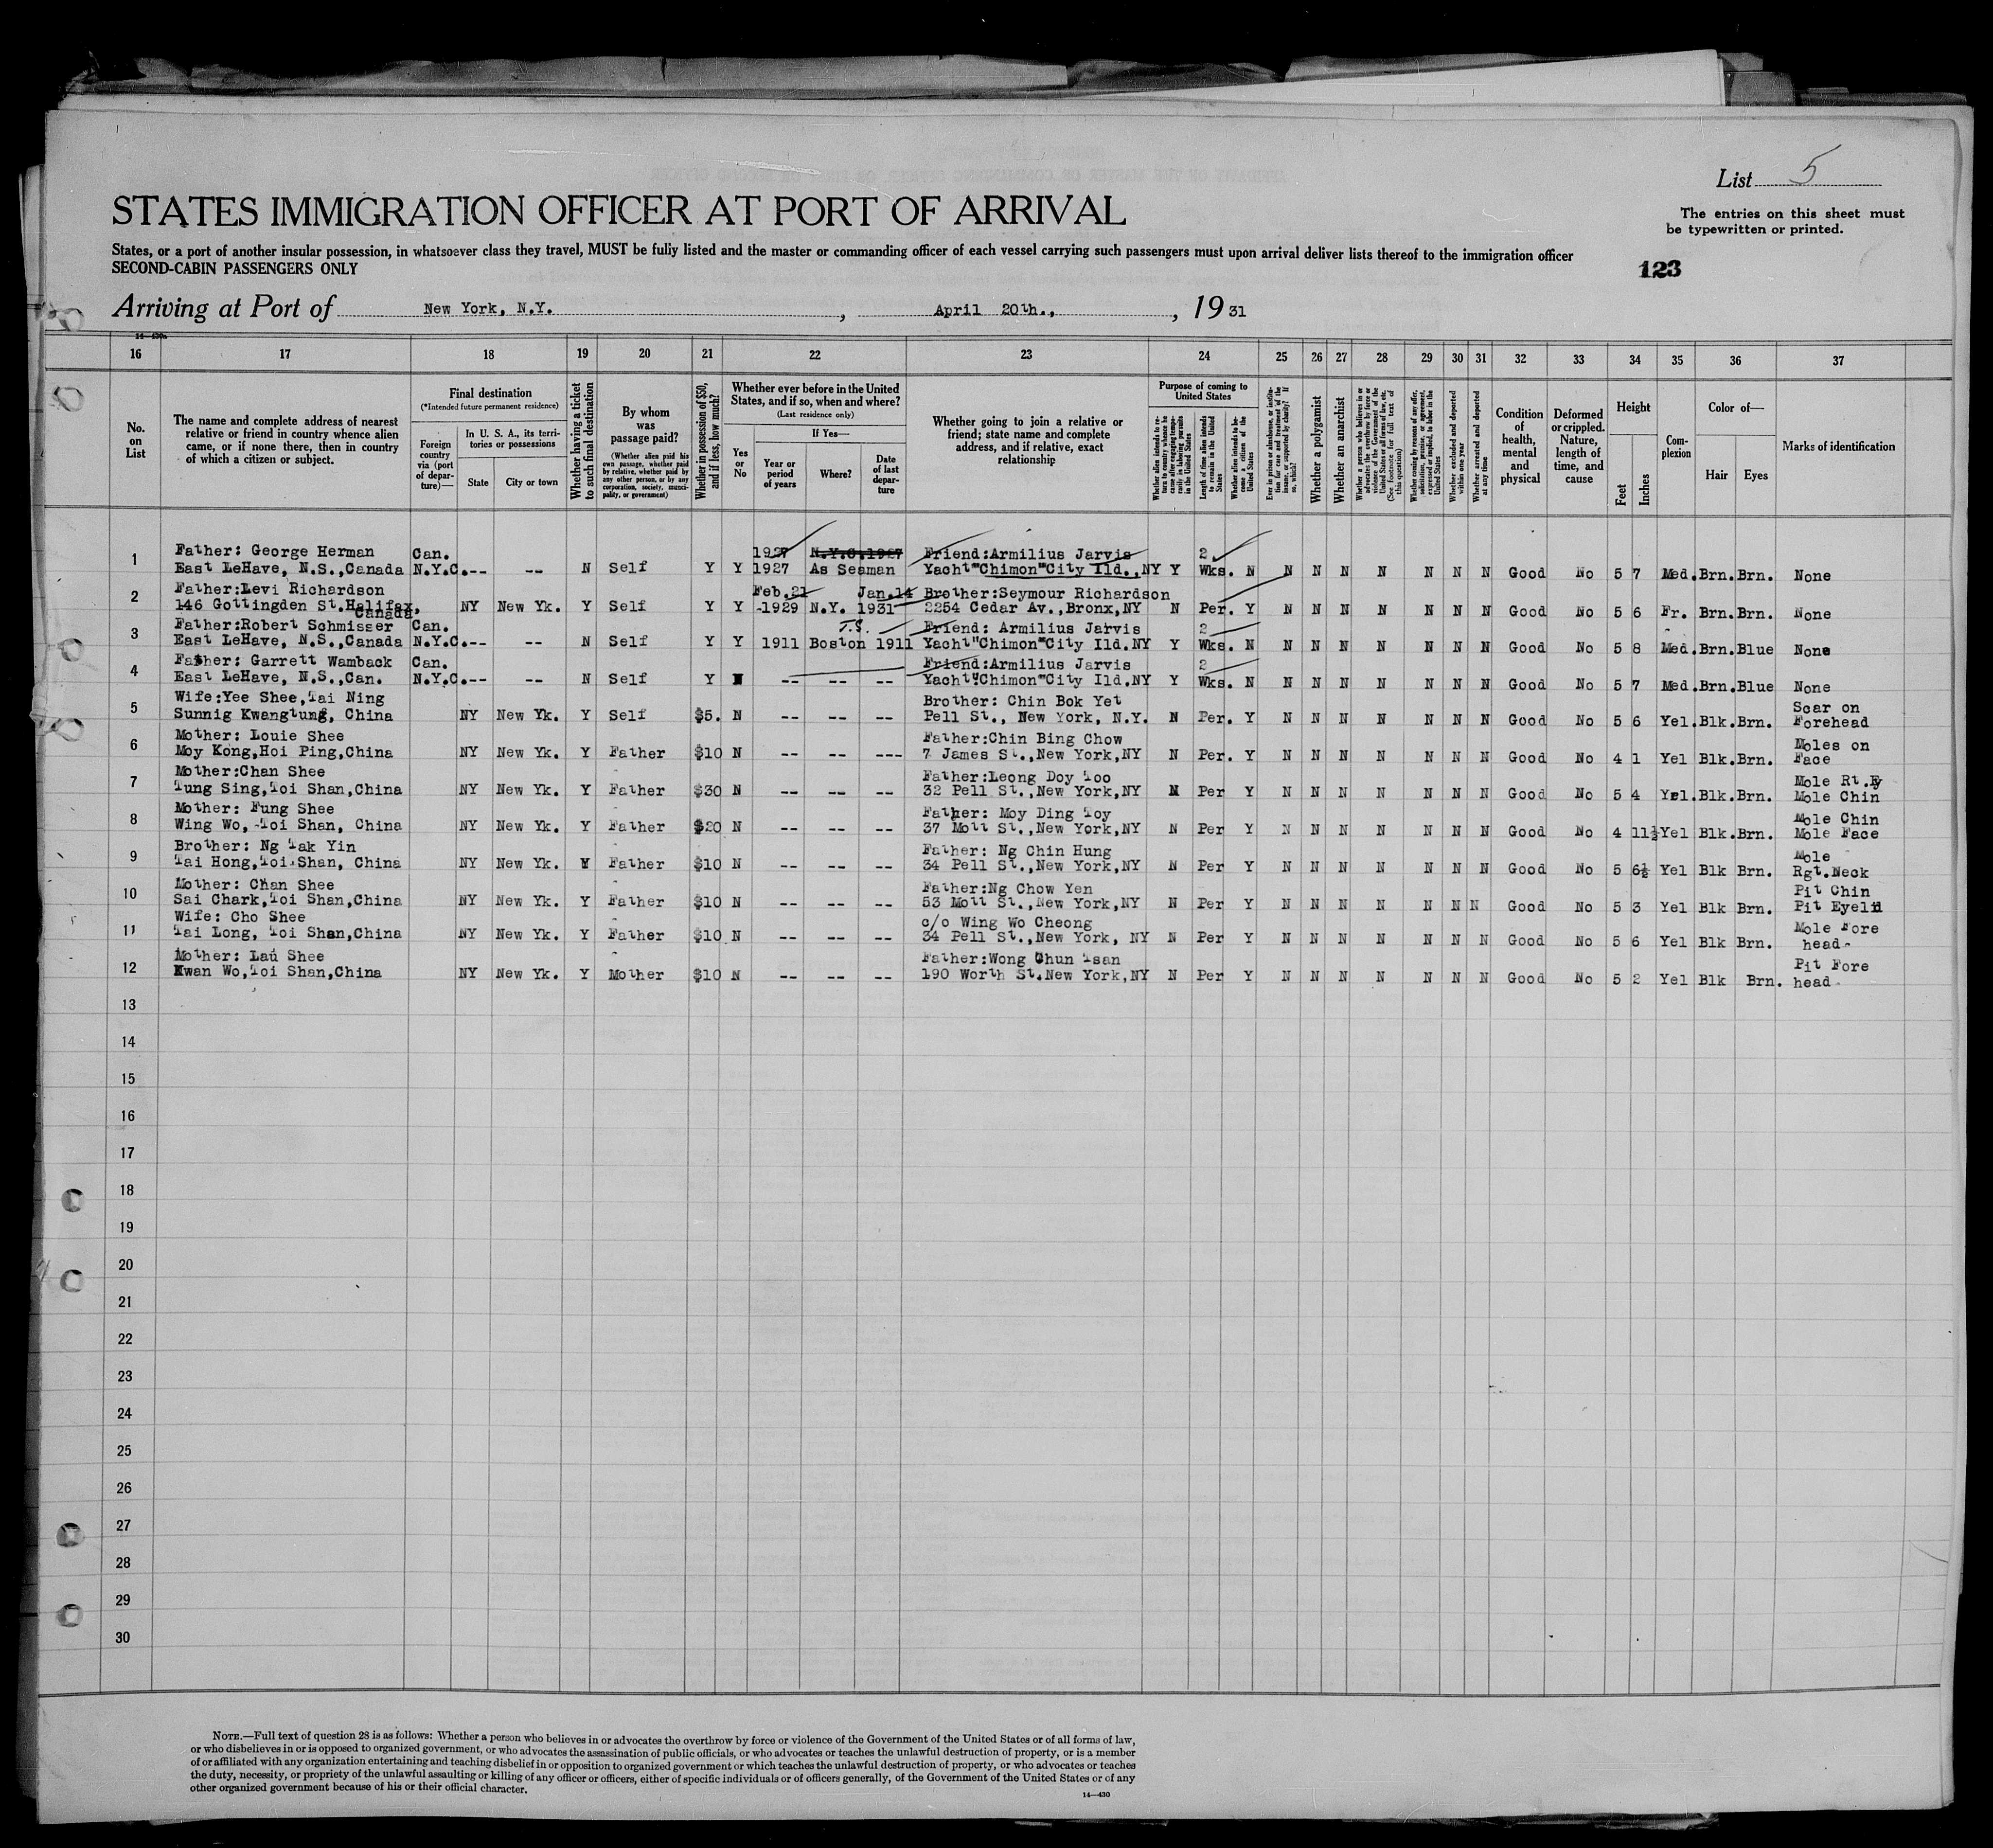 List 5
STATES IMMIGRATION OFFICER AT PORT OF ARRIVAL
The entries on this sheet must
be typewritten or printed.
States, or a port of another insular possession, in whatsoever class they travel, MUST be fully listed and the master or commanding officer of each vessel carrying such passengers must upon arrival deliver lists thereof to the immigration officer
SECOND-CABIN PASSENGERS ONLY
123
Arriving at Port of New York, N.Y. , April 20th., , 19 31
16 17 18 19 20 21 22 23 24 25 26 27 28 29 30 31 32 33 34 35 36 37
No. on List
The name and complete address of nearest relative or friend in country whence alien came, or if none there, then in country of which a citizen or subject.
Final destination
(*Intended future permanent residence)
Foreign country via (port of departure)—
In U. S. A., its territories or possessions
State
City or town
Whether having a ticket to such final destination
By whom was passage paid?
(Whether alien paid his own passage, whether paid by relative, whether paid by any other person, or by any corporation, society, municipality, or government)
Whether in possession of $50, and if less, how much?
Whether ever before in the United States, and if so, when and where?
(Last residence only)
Yes or No
If Yes—
Year or period of years
Where?
Date of last departure
Whether going to join a relative or friend; state name and complete address, and if relative, exact relationship
Purpose of coming to United States
Whether alien intends to return to country whence he came after engaging temporarily in laboring pursuits in the United States
Length of time alien intends to remain in the United States
Whether alien intends to become a citizen of the United States
Ever in prison or almshouse, or institution for care and treatment of the insane, or supported by charity? If so, which?
Whether a polygamist
Whether an anarchist
Whether a person who believes in or advocates the overthrow by force or violence of the Government of the United States or all forms of law, etc. (See footnote for full text of this question)
Whether coming by reason of any offer, solicitation, promise, or agreement, expressed or implied, to labor in the United States
Whether excluded and deported within one year
Whether arrested and deported at any time
Condition of health, mental and physical
Deformed or crippled. Nature, length of time, and cause
Height
Feet
Inches
Complexion
Color of—
Hair
Eyes
Marks of identification
1 Father: George Herman Can. 1927 N.Y.C.1927 Friend:Armilius Jarvis 2
East LeHave, N.S.,Canada N.Y.C.-- -- N Self Y Y 1927 As Seaman Yacht"Chimon"City Ild.,NY Y Wks. N N N N N N N N Good No 5 7 Med. Brn. Brn. None
2 Father:Levi Richardson Feb.21 Jan.14 Brother:Seymour Richardson
146 Gottingden St.Halifax, Canada NY New Yk. Y Self Y Y -1929 N.Y. 1931 2254 Cedar Av.,Bronx,NY N Per. Y N N N N N N N Good No 5 6 Fr. Brn. Brn. None
3 Father:Robert Schmisser Can. T.S. Friend: Armilius Jarvis 2
East LeHave, N.S.,Canada N.Y.C.-- -- N Self Y Y 1911 Boston 1911 Yacht"Chimon"City Ild.NY Y Wks. N N N N N N N N Good No 5 8 Med. Brn. Blue None
4 Father: Garrett Wamback Can. Friend:Armilius Jarvis 2
East LeHave, N.S.,Can. N.Y.C.-- -- N Self Y N -- -- -- Yacht"Chimon"City Ild.NY Y Wks. N N N N N N N N Good No 5 7 Med. Brn. Blue None
5 Wife:Yee Shee,Tai Ning Brother: Chin Bok Yet Scar on
Sunnig Kwangtung, China NY New Yk. Y Self $5. N -- -- -- Pell St., New York, N.Y. N Per. Y N N N N N N N Good No 5 6 Yel. Blk. Brn. Forehead
6 Mother: Louie Shee Father:Chin Bing Chow Moles on
Moy Kong,Hoi Ping,China NY New Yk. Y Father $10 N -- -- --- 7 James St.,New York,NY N Per. Y N N N N N N N Good No 4 1 Yel Blk. Brn. Face
7 Mother:Chan Shee Father:Leong Doy Too Mole Rt.Ey
Tung Sing,Toi Shan,China NY New Yk. Y Father $30 N -- -- -- 32 Pell St.,New York,NY N Per Y N N N N N N N Good No 5 4 Yel. Blk. Brn. Mole Chin
8 Mother: Fung Shee Father: Moy Ding Toy Mole Chin
Wing Wo, Toi Shan, China NY New Yk. Y Father $20 N -- -- -- 37 Mott St.,New York,NY N Per Y N N N N N N N Good No 4 11½ Yel Blk. Brn. Mole Face
9 Brother: Ng Tak Yin Father: Ng Chin Hung Mole
Tai Hong,Toi Shan, China NY New Yk. Y Father $10 N -- -- -- 34 Pell St.,New York,NY N Per Y N N N N N N N Good No 5 6½ Yel Blk Brn. Rgt.Neck
10 Mother: Chan Shee Father:Ng Chow Yen Pit Chin
Sai Chark,Toi Shan,China NY New Yk. Y Father $10 N -- -- -- 53 Mott St.,New York,NY N Per Y N N N N N N N Good No 5 3 Yel Blk Brn. Pit Eyelid
11 Wife: Cho Shee c/o Wing Wo Cheong Mole Fore
Tai Long, Toi Shan,China NY New Yk. Y Father $10 N -- -- -- 34 Pell St.,New York, NY N Per Y N N N N N N N Good No 5 6 Yel Blk Brn. head-
12 Mother: Lau Shee Father:Wong Chun Tsan Pit Fore
Kwan Wo,Toi Shan,China NY New Yk. Y Mother $10 N -- -- -- 190 Worth St.New York,NY N Per Y N N N N N N N Good No 5 2 Yel Blk Brn. head-
13
14
15
16
17
18
19
20
21
22
23
24
25
26
27
28
29
30
NOTE.—Full text of question 28 is as follows: Whether a person who believes in or advocates the overthrow by force or violence of the Government of the United States or of all forms of law,
or who disbelieves in or is opposed to organized government, or who advocates the assassination of public officials, or who advocates or teaches the unlawful destruction of property, or is a member
of or affiliated with any organization entertaining and teaching disbelief in or opposition to organized government or which teaches the unlawful destruction of property, or who advocates or teaches
the duty, necessity, or propriety of the unlawful assaulting or killing of any officer or officers, either of specific individuals or of officers generally, of the Government of the United States or of any
other organized government because of his or their official character.
14—430